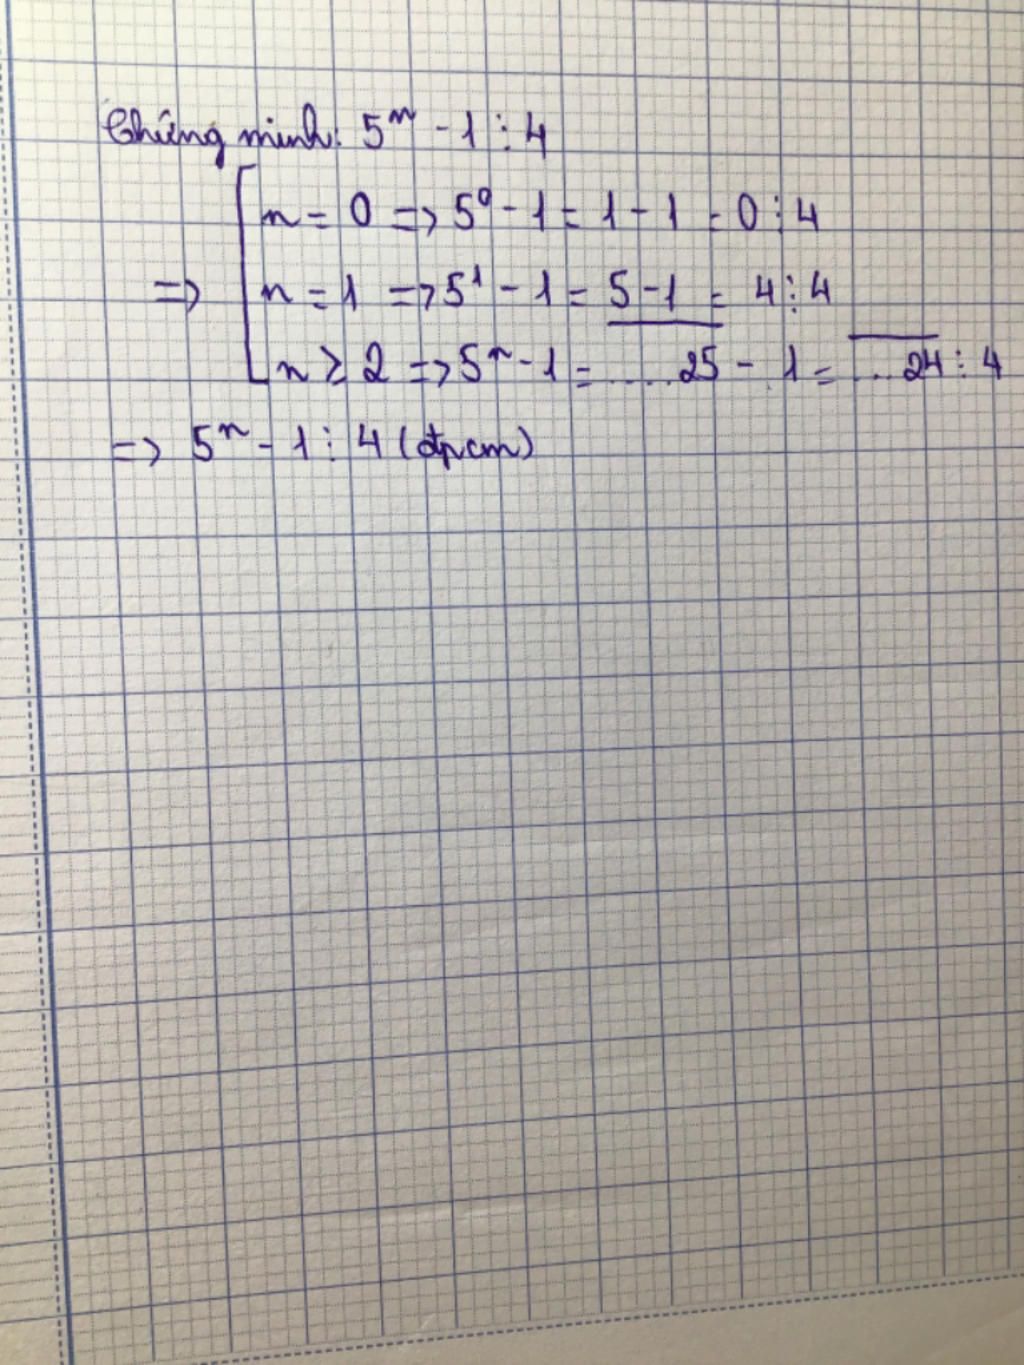 Chứng minh: 5ⁿ - 1 ⋮ 4
n = 0 => 5⁰ - 1 = 1 - 1 = 0 ⋮ 4
=> n = 1 => 5¹ - 1 = 5 - 1 = 4 ⋮ 4
n ≥ 2 => 5ⁿ - 1 = .....25 - 1 = ...24 ⋮ 4
=> 5ⁿ - 1 ⋮ 4 (đpcm)